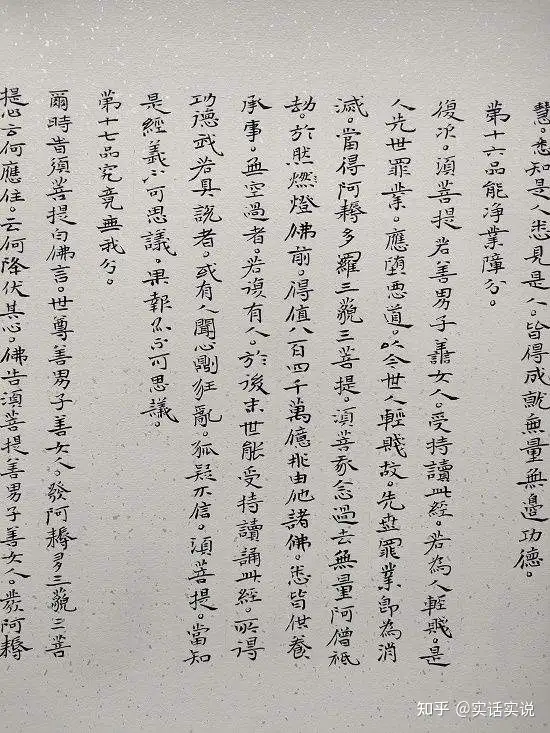 慧。悉知是人悉見是人。皆得成就無量無邊功德。
第十六品能净業障分。
復次。須菩提若善男子善女人。受持讀此經。若為人輕賤。是
人先世罪業。應堕惡道。以今世人輕賤故。先世罪業即為消
滅。當得阿耨多羅三藐三菩提。須菩我念過去無量阿僧祇
劫。於然燃燈佛前。得值八百四千萬億那由他諸佛。悉皆供養
承事。無空過者。若復有人。於後末世能受持讀誦此經。所得
功德我若具說者。或有人聞心則狂亂。狐疑不信。須菩提。當知
是經義不可思議。果報亦不可思議。
第十七品究竟無我分。
爾時須菩提白佛言。世尊善男子善女人。發阿耨多三藐三菩
提心云何應住。云何降伏其心。佛告須菩提善男子善女人。發阿耨
知乎 @实话实说